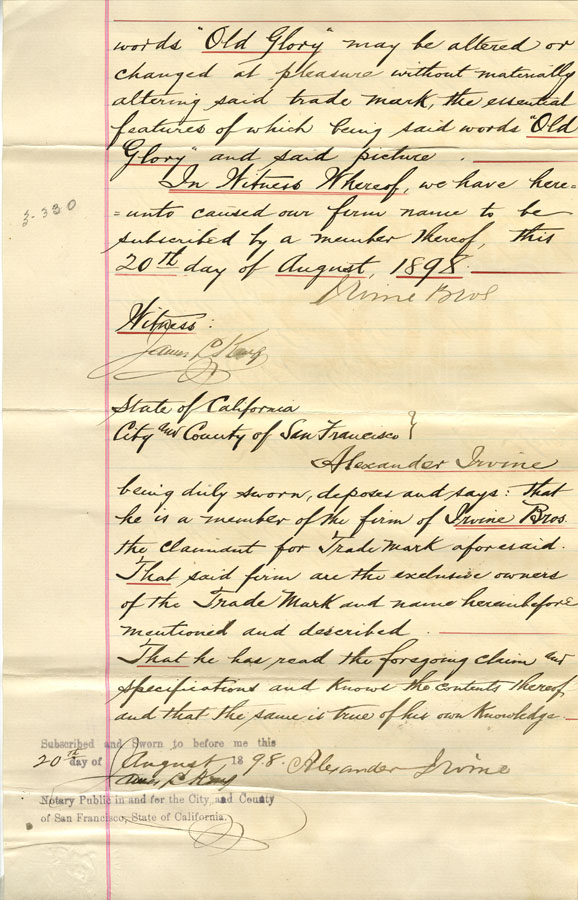 words "Old Glory" may be altered or
changed at pleasure without materially
altering said trade mark, the essential
features of which being said words "Old
Glory" and said picture.
In Witness Whereof, we have here=
=unto caused our firm name to be
subscribed by a member thereof, this
20th day of August, 1898.
Irvine Bros
3-330
Witness:
James
State of California
City and County of San Francisco }
Alexander Irvine
being duly sworn, deposes and says: that
he is a member of the firm of Irvine Bros.
the claimant for Trade Mark aforesaid.
That said firm are the exclusive owners
of the Trade Mark and name hereinbefore
mentioned and described.
That he has read the foregoing claim and
specifications and knows the contents thereof,
and that the same is true of his own knowledge.
Subscribed and Sworn to before me this
20th day of August 1898. Alexander Irvine
James
Notary Public in and for the City and County
of San Francisco, State of California.